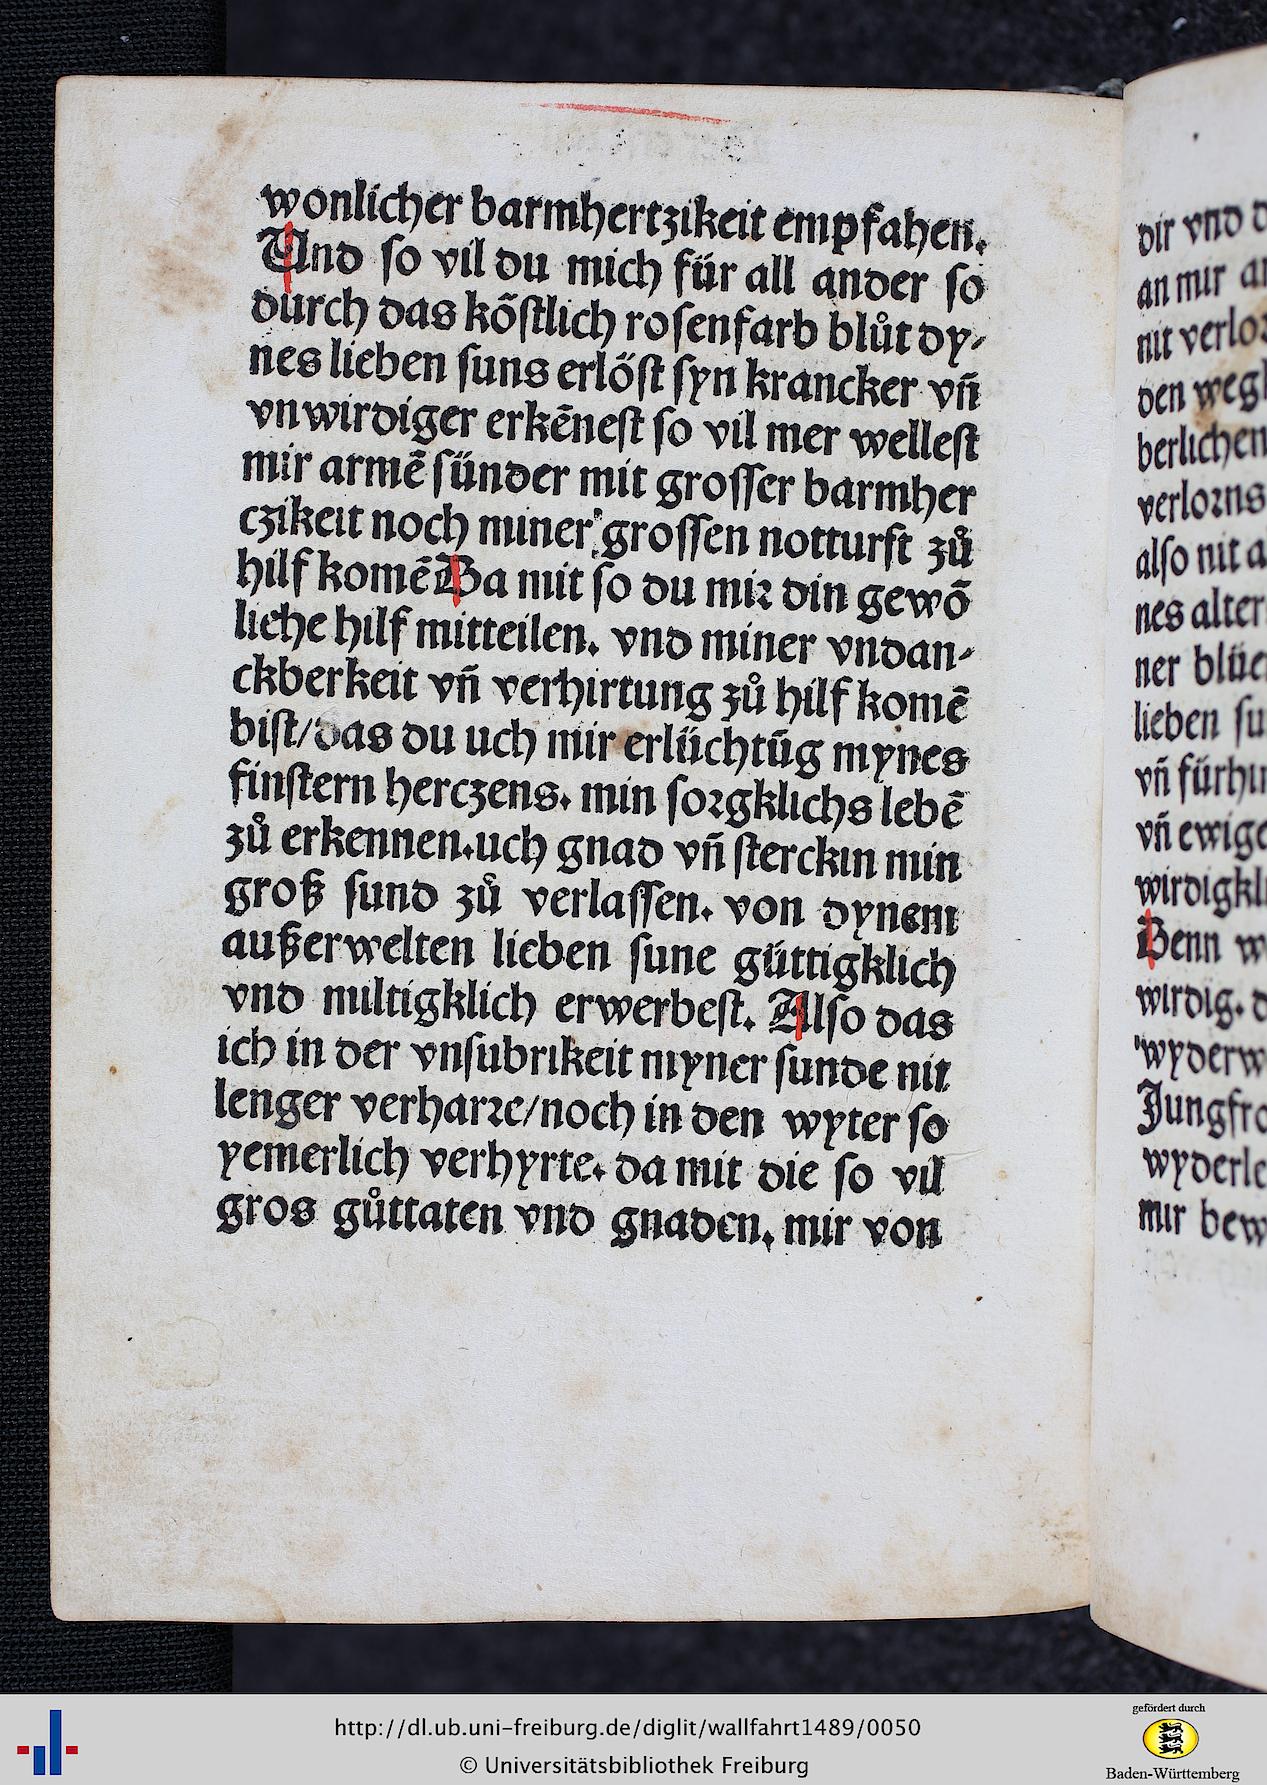 wonlicher barmhertzikeit empfahen.
Und so vil du mich für all ander so
durch das kōstlich rosenfarb blůt dy⸗
nes lieben suns erlöst syn krancker vñ
vnwirdiger erkēnest so vil mer wellest
mir armē sünder mit grosser barmher
czikeit noch miner grossen notturft zů
hilf komē Da mit so du mir din gewō
liche hilf mitteilen. vnd miner vndan⸗
ckberkeit vñ verhirtung zů hilf komē
bist/das du uch mir erlüchtūg mynes
finstern herczens. min sorgklichs lebē
zů erkennen.uch gnad vñ sterckin min
groß sund zů verlassen. von dynem
außerwelten lieben sune güttigklich
vnd miltigklich erwerbest. Also das
ich in der vnsubrikeit myner sunde nit
lenger verharre/noch in den wyter so
yemerlich verhyrte. da mit die so vil
gros gůttaten vnd gnaden. mir von
dir vnd
an mir
nit verlor
den weg
berlichen
verlorns
also nit a
nes alter
ner blüe
lieben su
vñ fürhi
vñ ewige
wirdigkli
Denn w
wirdig. d
wyderw
Jungfro
wyderle
mir bew
http://dl.ub.uni-freiburg.de/diglit/wallfahrt1489/0050
© Universitätsbibliothek Freiburg
gefördert durch
Baden-Württemberg